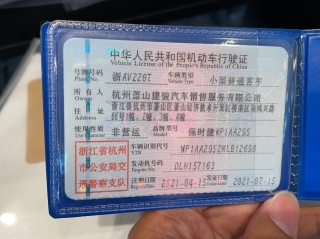 中华人民共和国机动车行驶证
Vehicle License of the People's Republic of China
号牌号码 浙AV226T 车辆类型 小型普通客车
Plate No. Vehicle Type
所有人 杭州萧山捷骏汽车销售服务有限公司
Owner
住址 浙江省杭州市萧山区萧山经济技术开发区
1幢、2幢、3幢、4幢
使用性质 非营运 品牌型号 保时捷WP1AA295
浙江省杭州
市公安局交
通警察支队
车辆识别代号 WP1AA2952MLB12698
VIN
发动机号码 DLH157163
Engine No.
注册日期 2021-04-15 发证日期 2021-07-15
Register Date Issue Date